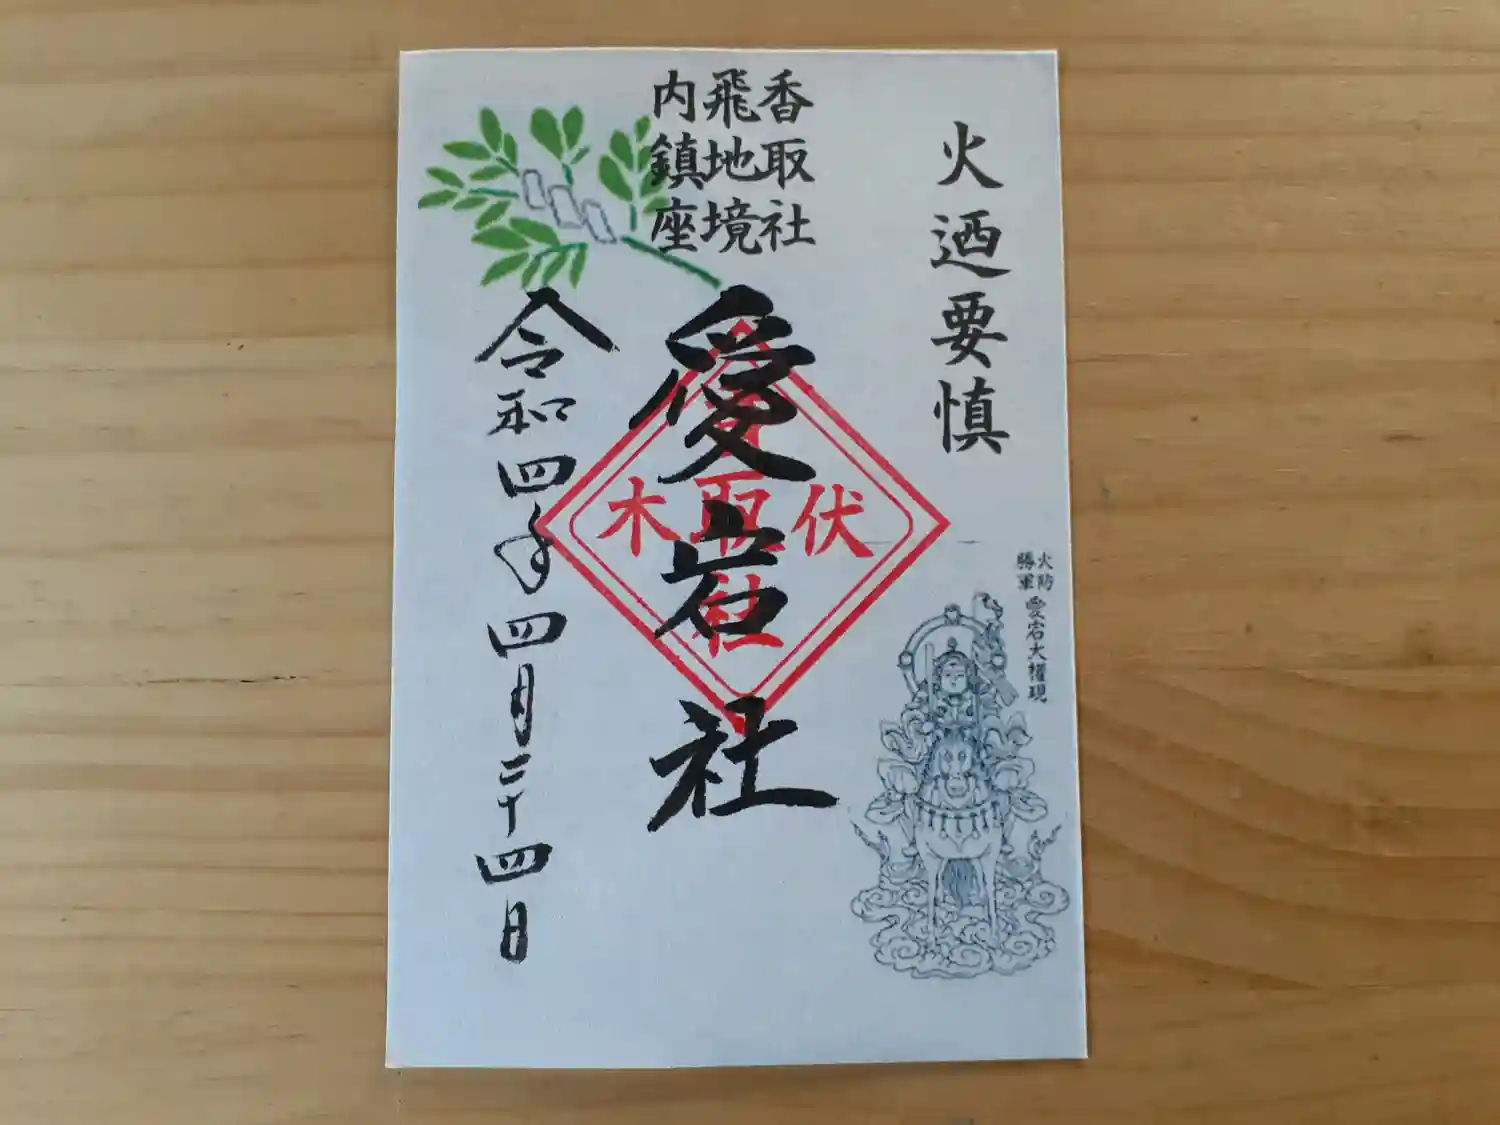 火迺要慎
火防
勝軍
愛宕大権現
香取社
飛地境
内鎮座
愛岩社
香取社
伏木
令和四年四月二十四日